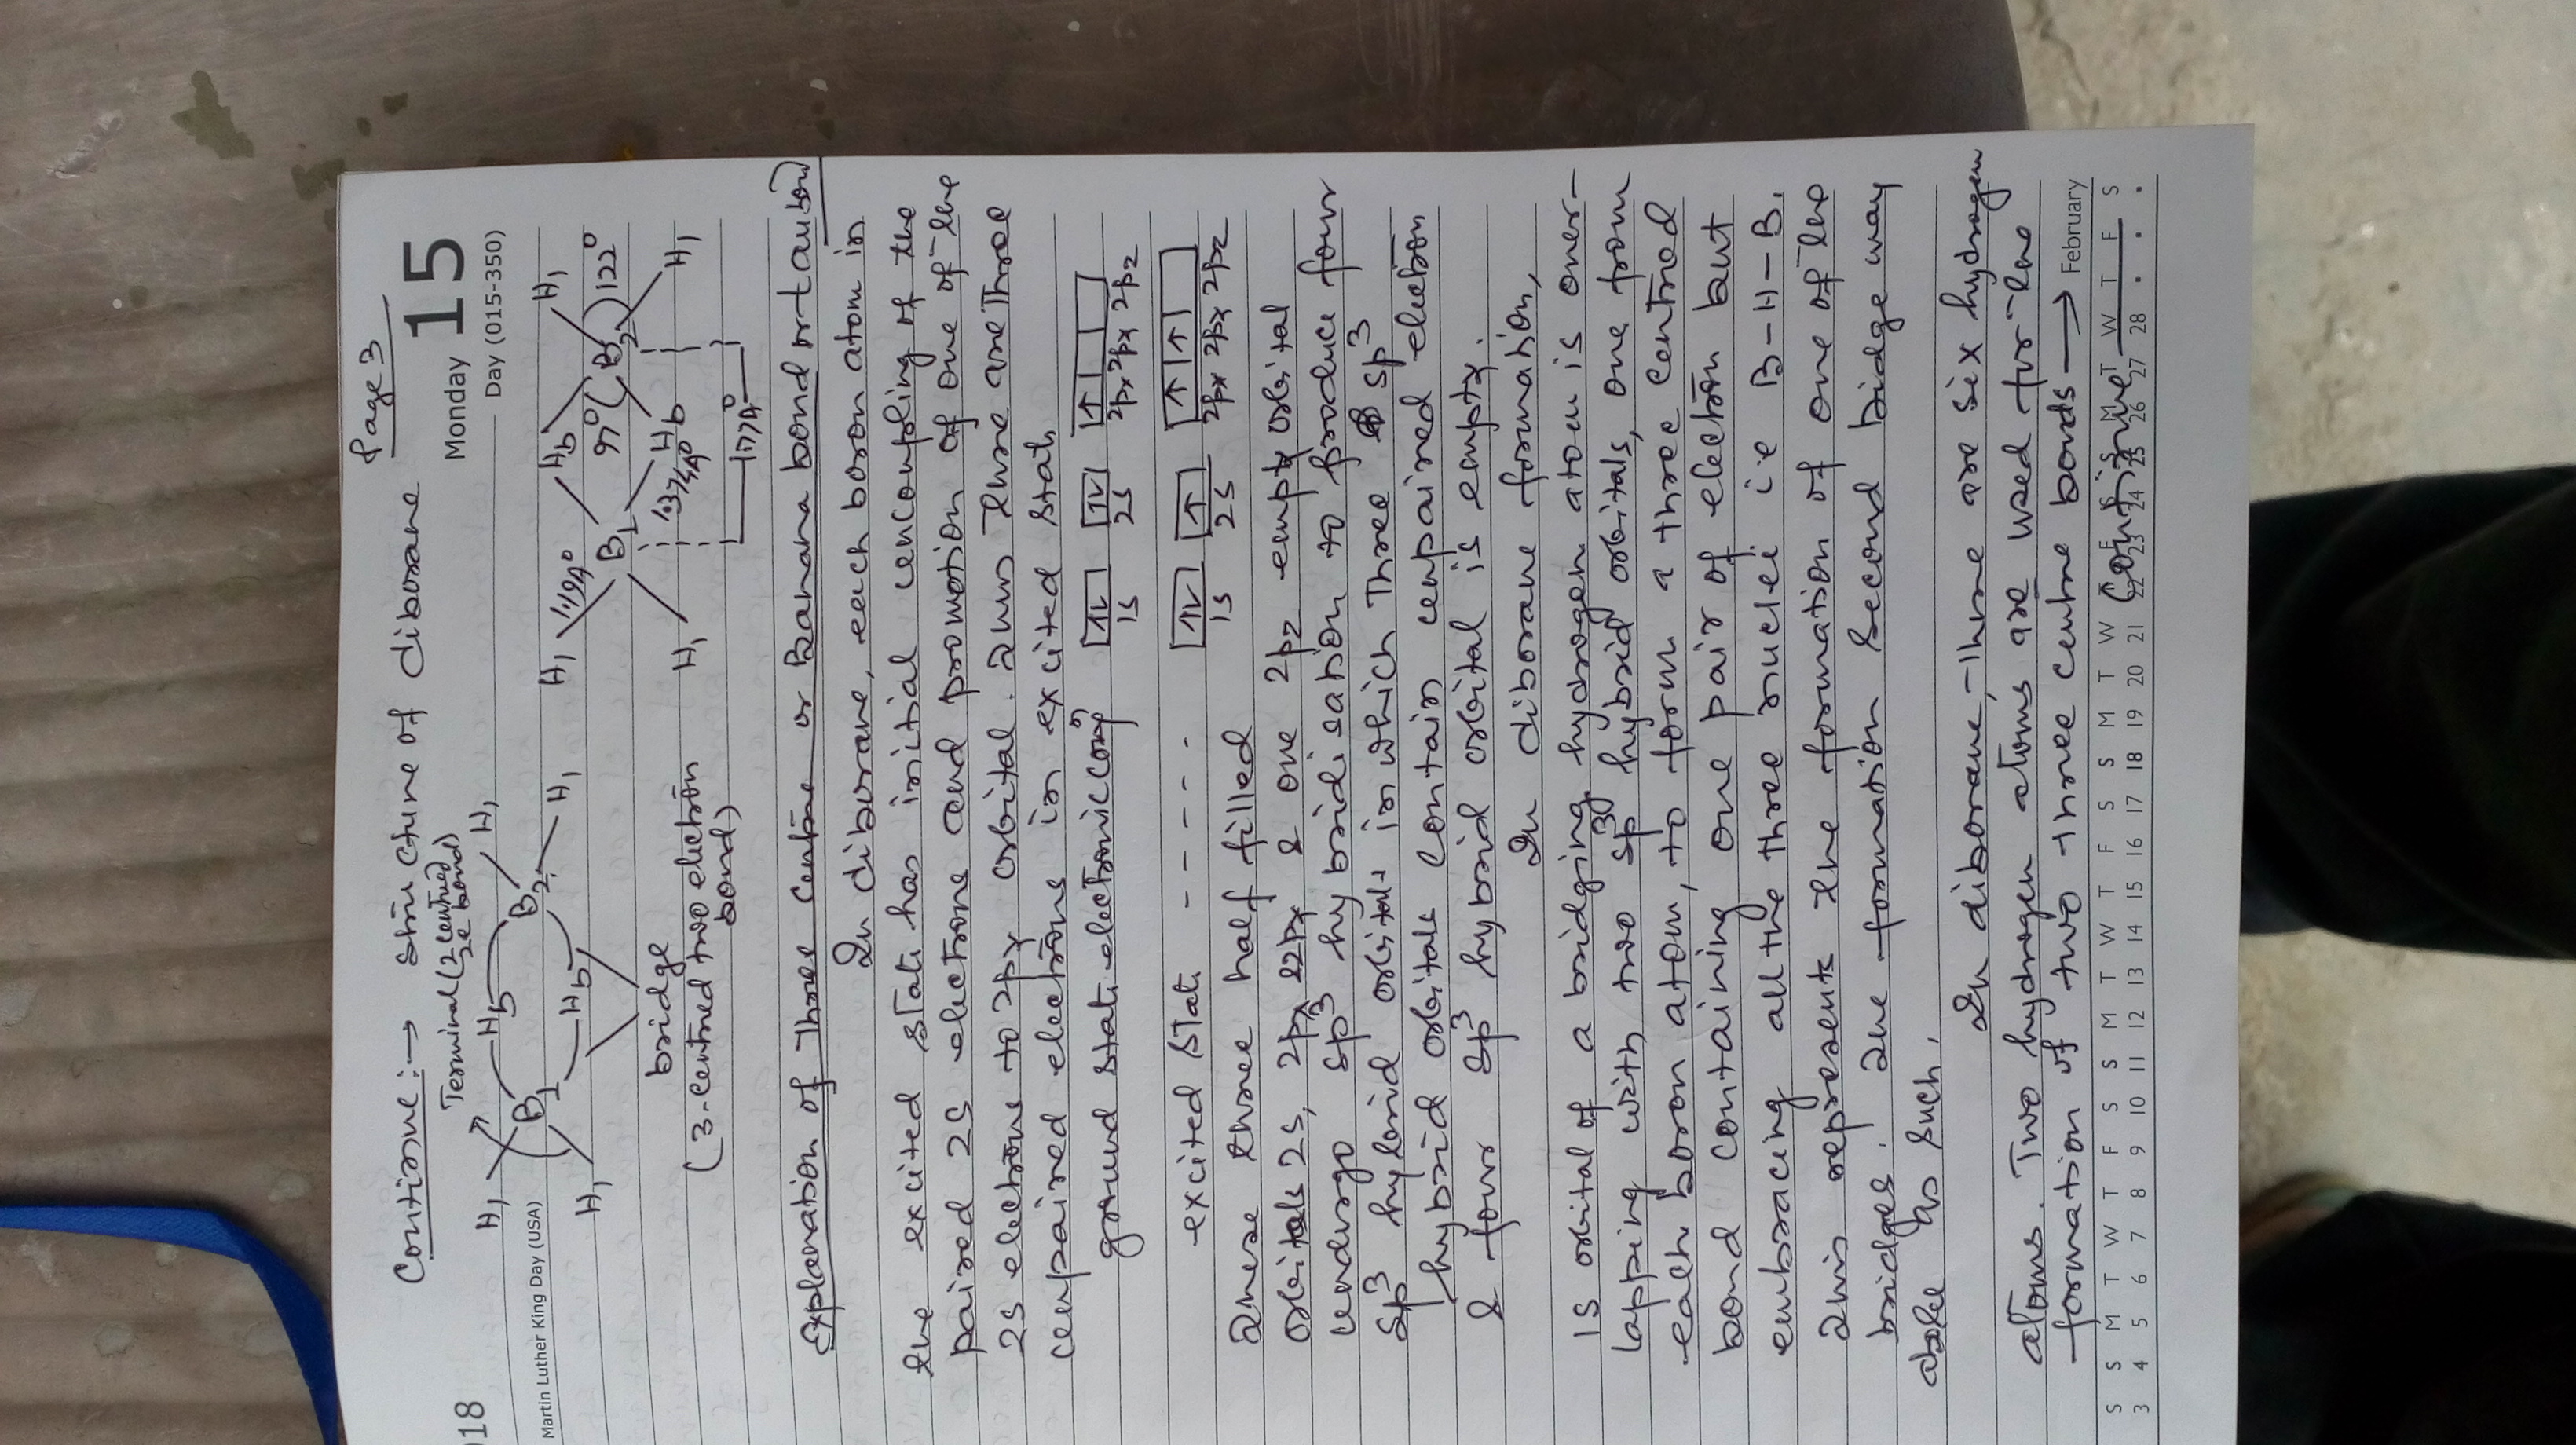 Page 3
Continue:→ structure of diborane
Monday 15
Day (015-350)
018
Martin Luther King Day (USA)
Terminal (2-centred
2e bond)
H1 Hb H1
B1 B2
H1 Hb H1
bridge
(3-centred two electron
bond)
H1 Hb H1
119A° 97° 122°
B1 B2
H1 Hb H1
1.77A°
Explanation of Three centre or Banana bond or tau bond
In diborane, each boron atom in
the excited state has initial uncoupling of the
paired 2s electrons and promotion of one of the
2s electrons to 2px orbital. Thus there are Three
unpaired electrons in excited state
ground state electronic conf 1s 2s 2px 2px 2pz
excited state ----- 1s 2s 2px 2px 2pz
These three half filled
orbitals 2s, 2px & 2px & one 2pz empty orbital
undergo sp3 hybridisation to produce four
sp3 hybrid orbitals in which Three sp3
hybrid orbitals contain unpaired electron
& four sp3 hybrid orbital is empty.
In diborane formation,
1s orbital of a bridging hydrogen atom is over-
lapping with two sp3 hybrid orbitals, one from
each boron atom, to form a three centred
bond containing one pair of electron but
embracing all the three nuclei ie B-H-B.
This represents the formation of one of the
bridges. The formation second bridge may
also be such.
In diborane, there are six hydrogen
atoms. Two hydrogen atoms are used for the
formation of two three centre bonds →
Continue
February
S S M T W T F S S M T W T F S S M T W T F S S M T W T F S
3 4 5 6 7 8 9 10 11 12 13 14 15 16 17 18 19 20 21 22 23 24 25 26 27 28 . . .